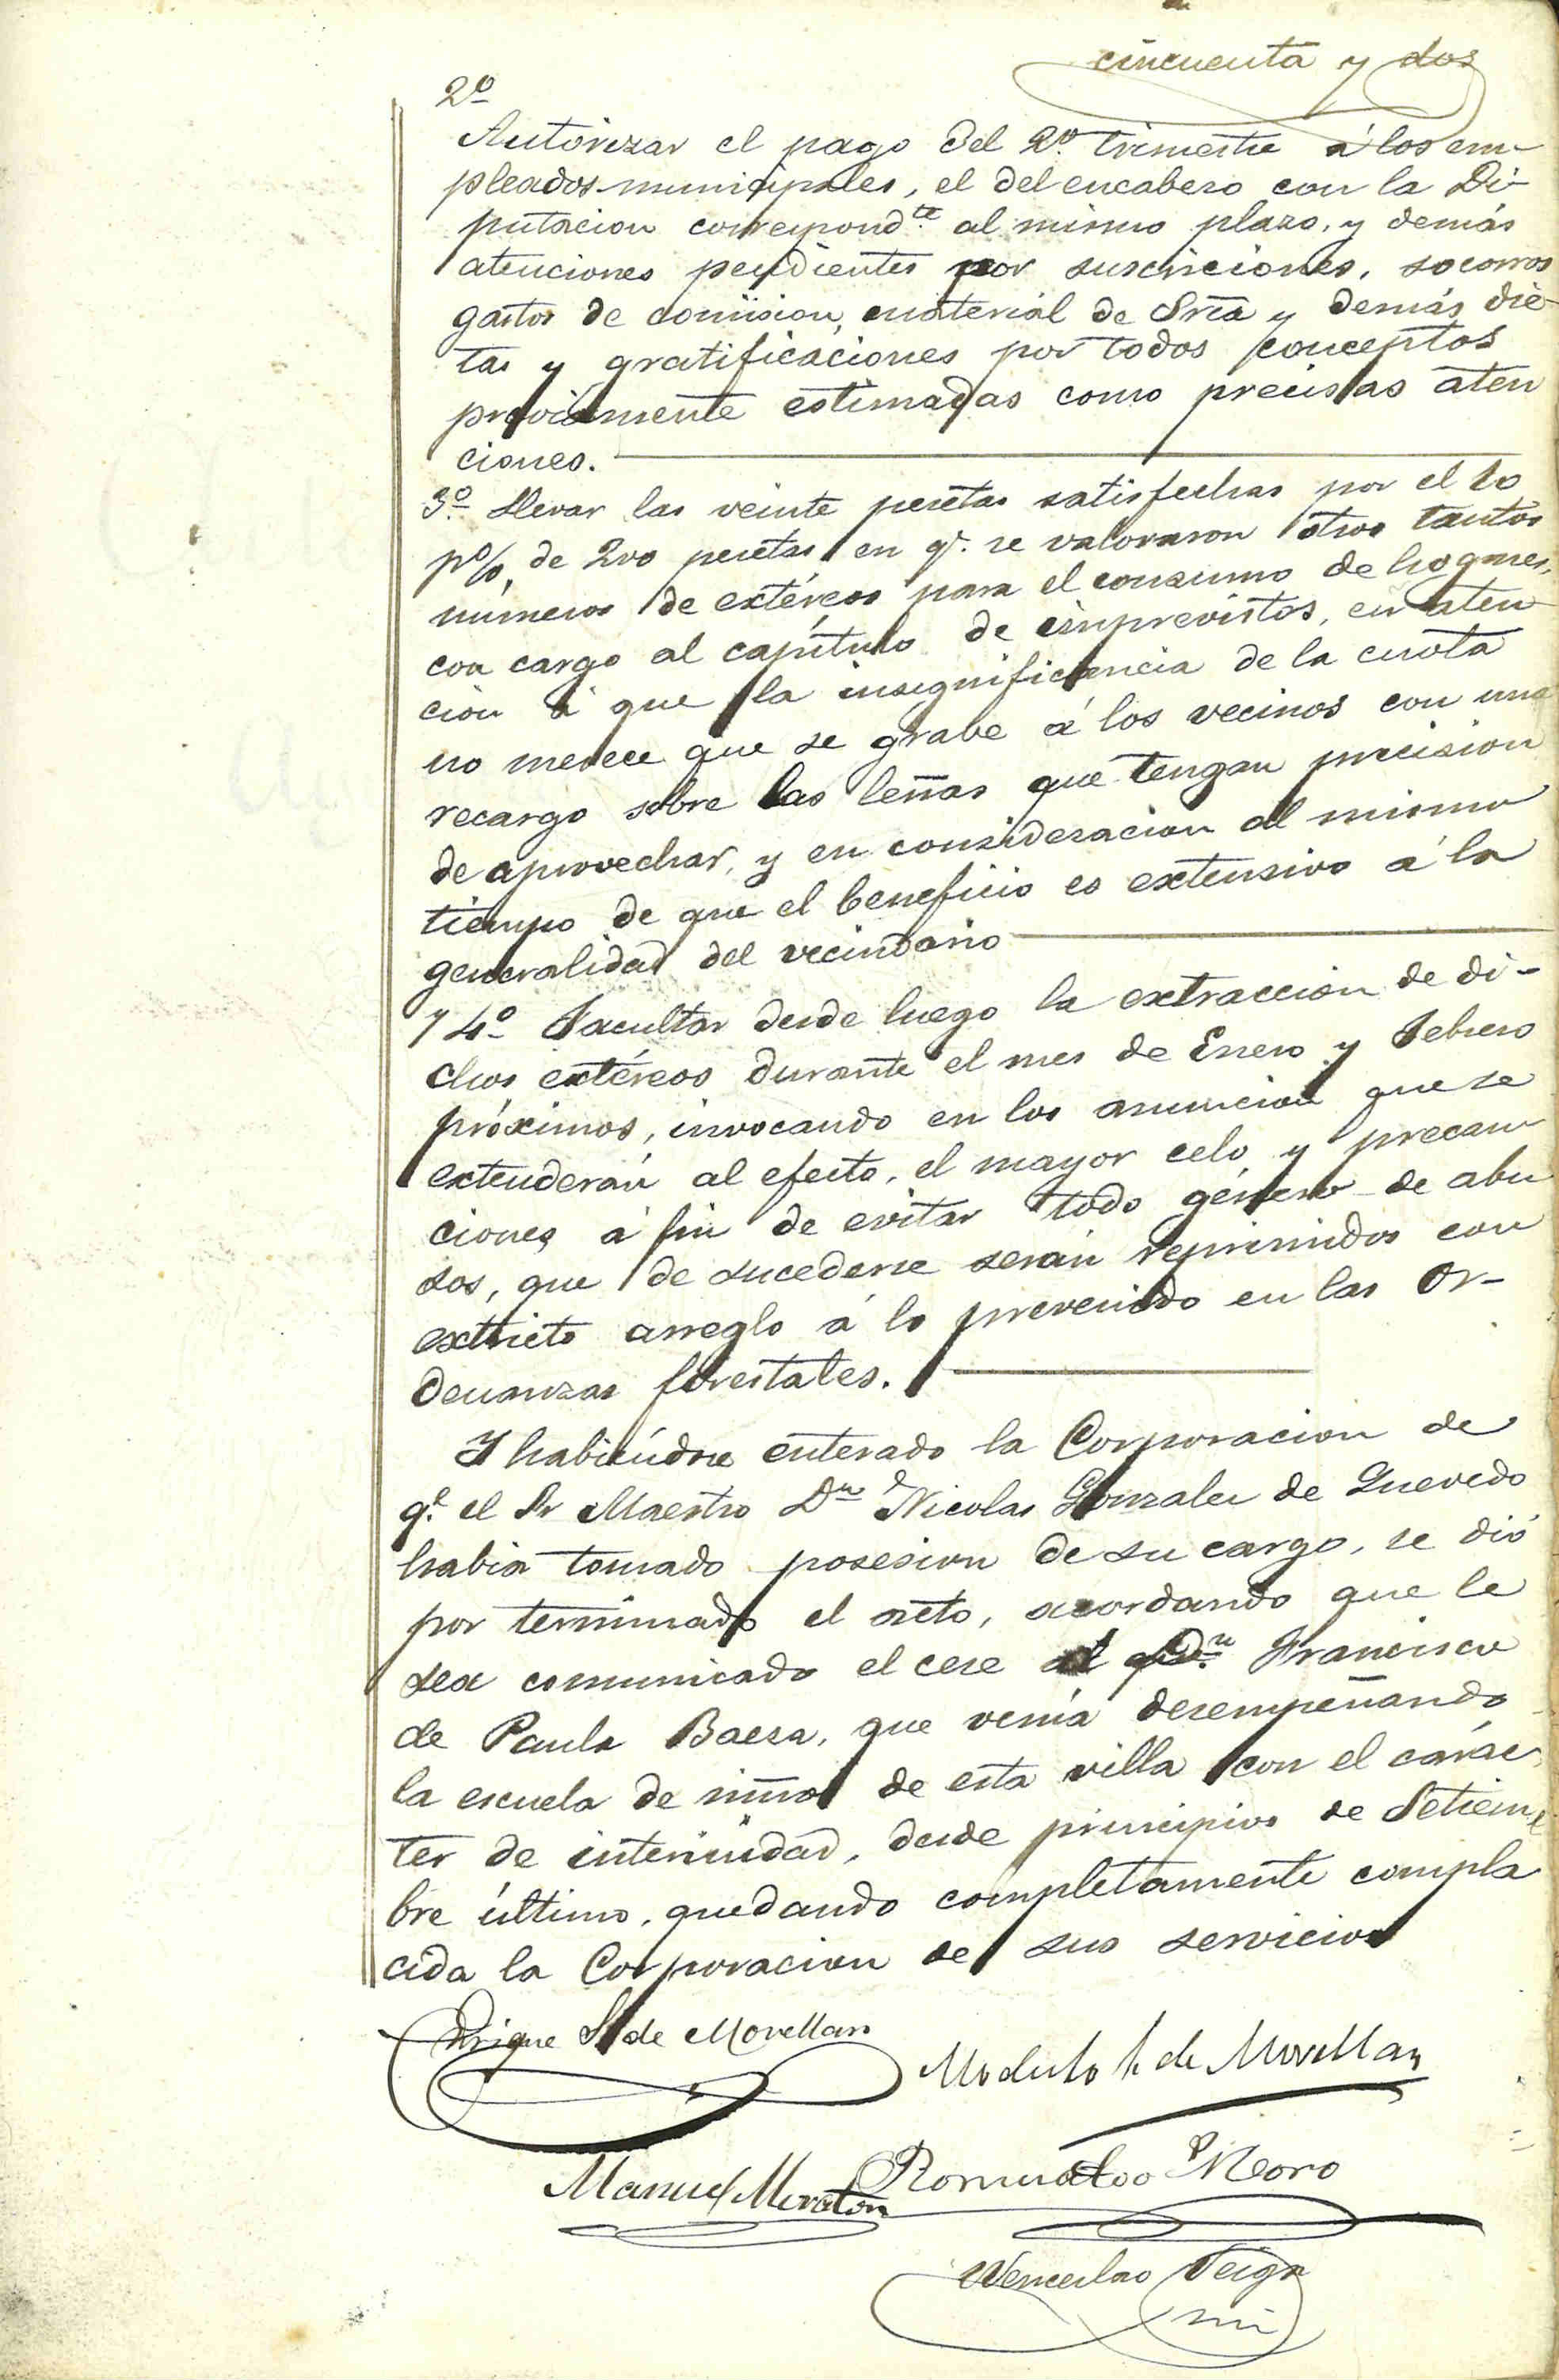 cincuenta y dos
2º
Autorizar el pago del 2º trimestre á los em-
pleados municipales, el del encabezo con la Di-
putacion correspond.te al mismo plazo, y demás
atenciones pendientes por suscriciones, socorros
gastos de comision, material de Sría y demás die-
tas y gratificaciones por todos conceptos
previamente estimadas como precisas aten
ciones.
3º Llevar las veinte pesetas satisfechas por el 10
p% de 200 pesetas en q.e se valoraron otros tantos
números de extéreos para el consumo de hogares,
con cargo al capítulo de imprevistos, en aten
cion á que la insignificancia de la cuota
no merece que se grave á los vecinos con una
recargo sobre las leñas que tengan precision
de aprovechar, y en consideracion al mismo
tiempo de que el beneficio es extensivo á la
generalidad del vecindario
y 4º Facultar desde luego la extraccion de di-
chos extéreos durante el mes de Enero y Febrero
próximos, invocando en los anuncios que se
extenderán al efecto, el mayor celo y precau
ciones á fin de evitar todo género de abu
sos, que de sucederse serán reprimidos con
extricto arreglo á lo prevenido en las Or-
denanzas forestales.
Y habiéndose enterado la Corporacion de
q.e el Sr Maestro Dn Nicolas Gonzalez de Quevedo
habia tomado posesion de su cargo, se dió
por terminado el acto, acordando que le
sea comunicado el cese al Dn. Francisco
de Paula Baeza, que venía desempeñando
la escuela de niños de esta villa con el carác
ter de interinidad, desde principios de Setiem
bre último, quedando completamente compla
cida la Corporacion de sus servicios
Enrique S. de Movellan
Modesto S. de Movellan
Manuel Moraton Romualdo Moro
Wenceslao Veiga